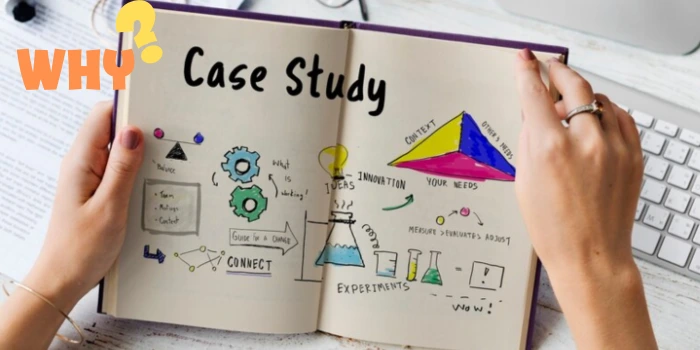 WHY?
Case Study
Balance
• Team
• Meetings
• Content
What
is
working?
GUIDE for a CHANGE
CONNECT
IDEAS - INNOVATION
CONTEXT
OTHER'S NEEDS
YOUR NEEDS
MEASURE > EVALUATE > ADJUST
EXPERIMENTS
= !
WOW!